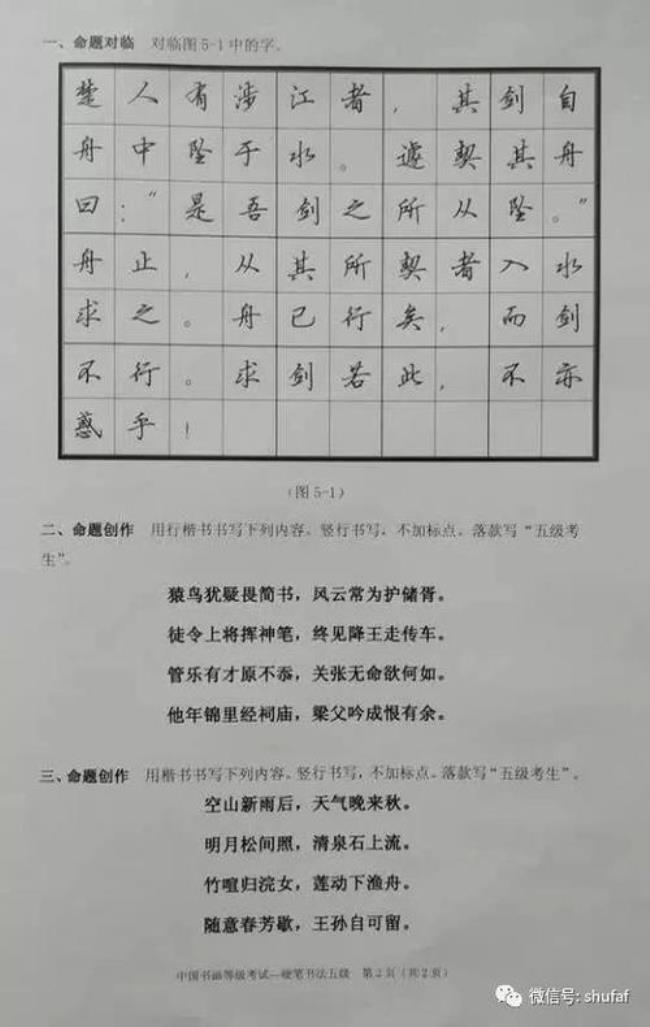 一、命题对临　对临图5-1中的字。
楚人有涉江者，其剑自
舟中坠于水。遽契其舟
曰：“是吾剑之所从坠。”
舟止，从其所契者入水
求之。舟已行矣，而剑
不行。求剑若此，不亦
惑乎！
（图5-1）
二、命题创作　用行楷书书写下列内容。竖行书写，不加标点。落款写“五级考
生”。
猿鸟犹疑畏简书，风云常为护储胥。
徒令上将挥神笔，终见降王走传车。
管乐有才原不忝，关张无命欲何如。
他年锦里经祠庙，梁父吟成恨有余。
三、命题创作　用楷书书写下列内容。竖行书写，不加标点。落款写“五级考生”。
空山新雨后，天气晚来秋。
明月松间照，清泉石上流。
竹喧归浣女，莲动下渔舟。
随意春芳歇，王孙自可留。
中国书画等级考试—硬笔书法五级　第2页（共2页）
微信号: shufaf